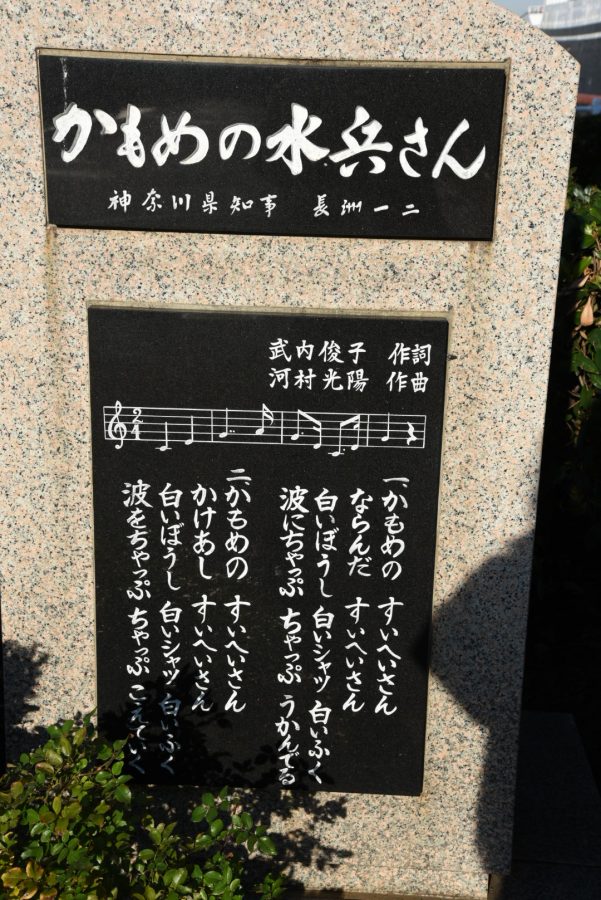 かもめの水兵さん
神奈川県知事 長洲一二
武内俊子 作詞
河村光陽 作曲
一 かもめの すいへいさん
ならんだ すいへいさん
白いぼうし 白いシャツ 白いふく
波にちゃっぷ ちゃっぷ うかんでる
二 かもめの すいへいさん
かけあし すいへいさん
白いぼうし 白いシャツ 白いふく
波をちゃっぷ ちゃっぷ こえていく